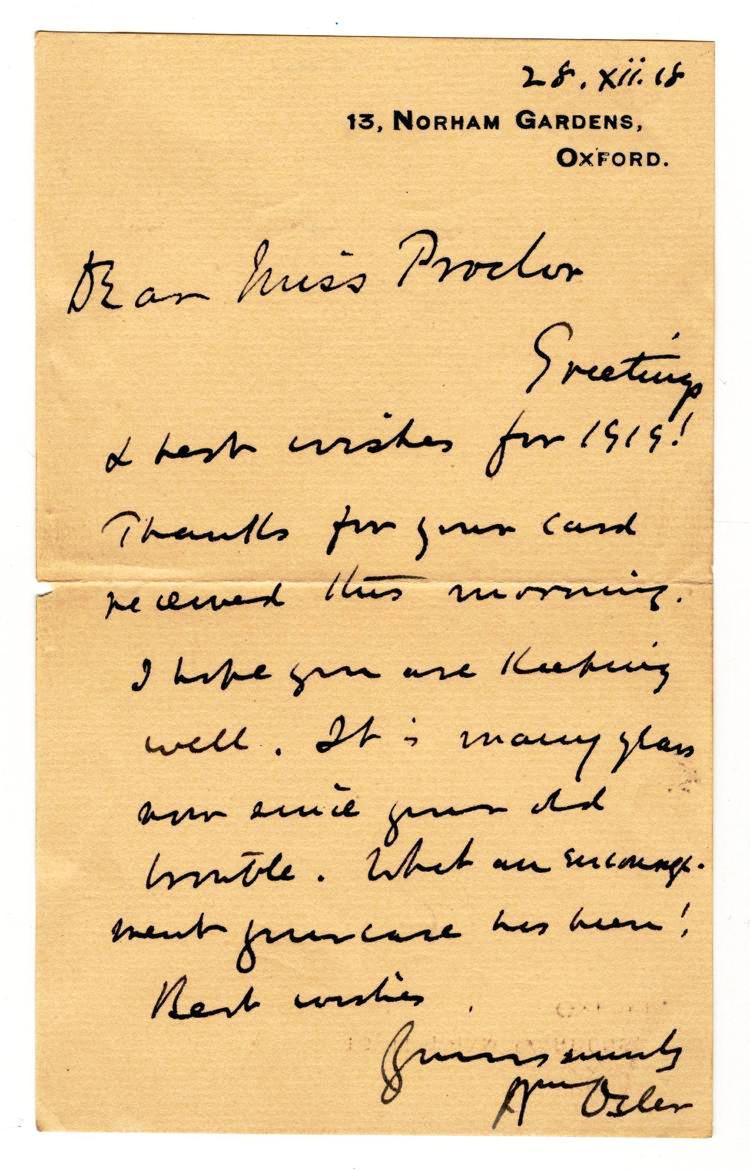 28.xii.18
13, NORHAM GARDENS,
OXFORD.
Dear Miss Proctor
Greetings
& best wishes for 1919!
Thanks for your card
received this morning.
I hope you are keeping
well. It is many years
now since your old
trouble. What an encourage-
ment your case has been!
Best wishes
Yours sincerely
Wm Osler